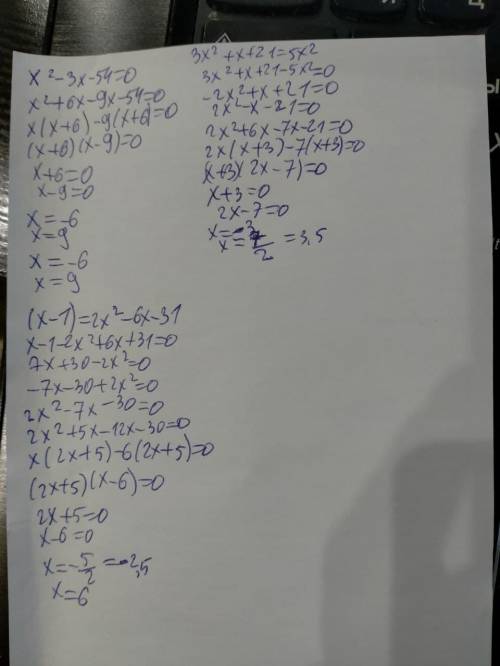 x²-3x-54=0
x²+6x-9x-54=0
x(x+6)-9(x+6)=0
(x+6)(x-9)=0
x+6=0
x-9=0
x=-6
x=9
x=-6
x=9
3x²+x+21=5x²
3x²+x+21-5x²=0
-2x²+x+21=0
2x²-x-21=0
2x²+6x-7x-21=0
2x(x+3)-7(x+3)=0
(x+3)(2x-7)=0
x+3=0
2x-7=0
x=-3
x=7/2=3,5
(x-1)=2x²-6x-31
x-1-2x²+6x+31=0
7x+30-2x²=0
-7x-30+2x²=0
2x²-7x-30=0
2x²+5x-12x-30=0
x(2x+5)-6(2x+5)=0
(2x+5)(x-6)=0
2x+5=0
x-6=0
x=-5/2=-2,5
x=6